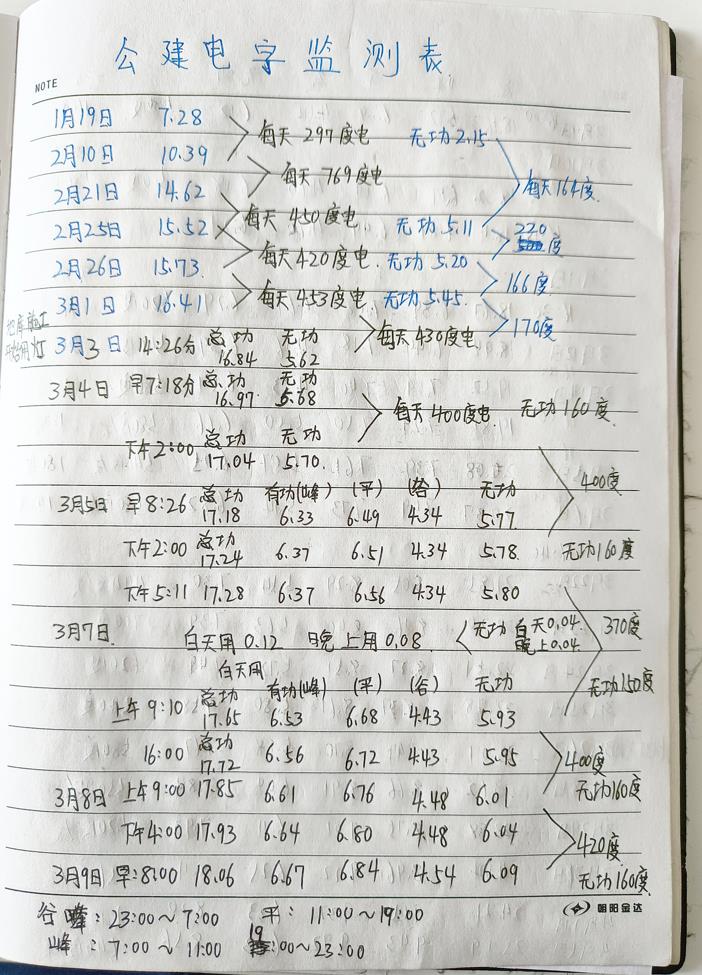 公建电字监测表
NOTE
1月19日 7.28
每天297度电 无功2.15
2月10日 10.39
每天769度电
2月21日 14.62 每天164度
每天450度电
2月25日 15.52 无功5.11 220度
每天420度电 无功5.20
2月26日 15.73 166度
每天453度电 无功5.45
3月1日 16.41
170度
开始用灯 3月3日 14:26分 总功 无功 每天430度电
16.84 5.62
3月4日 早7:18分 总功 无功
16.97 5.68
每天400度电 无功160度
下午2:00 总功 无功
17.04 5.70
400度
3月5日 早8:26 总功 有功(峰) (平) (谷) 无功
17.18 6.33 6.49 4.34 5.77
下午2:00 总功
17.24 6.37 6.51 4.34 5.78 无功160度
下午5:11 17.28 6.37 6.56 4.34 5.80
3月7日 白天用0.12 晚上用0.08 无功 白天0.04 370度
晚上0.04
白天用
无功150度
上午9:10 总功 有功(峰) (平) (谷) 无功
17.65 6.53 6.68 4.43 5.93
16:00 总功
17.72 6.56 6.72 4.43 5.95 400度
3月8日 上午9:00 17.85 6.61 6.76 4.48 6.01 无功160度
下午4:00 17.93 6.64 6.80 4.48 6.04 420度
3月9日 早:8:00 18.06 6.67 6.84 4.54 6.09 无功160度
朝阳金达
谷 : 23:00~7:00 平: 11:00~19:00
峰: 7:00~11:00 19:00~23:00